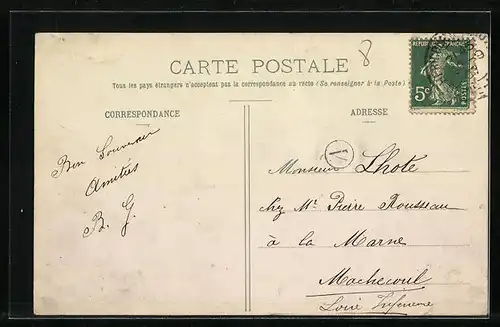 8
CARTE POSTALE
Tous les pays étrangers n'acceptent pas la correspondance au recto (Se renseigner à la Poste)
CORRESPONDANCE
ADRESSE
REPUBLIQUE FRANÇAISE
5c
POSTES
Bon Souvenir
Amitiés
B. G.
Monsieur Lhote
chez Mr Pierre Rousseau
à la Marne
Machecoul
Loire Inférieure